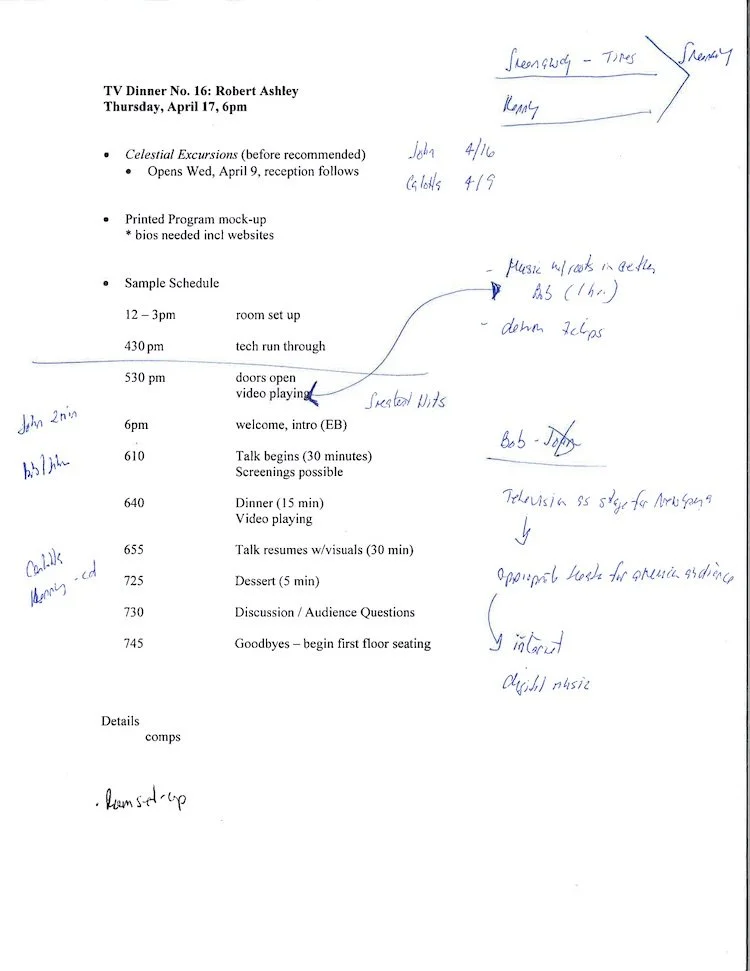 TV Dinner No. 16: Robert Ashley
Thursday, April 17, 6pm
Greenaway - Times
Kenny
• Celestial Excursions (before recommended)
• Opens Wed, April 9, reception follows
John 4/16
4/9
• Printed Program mock-up
* bios needed incl websites
• Sample Schedule
- Music w/roots in aether
Bob (1 hr)
12 – 3pm room set up
430 pm tech run through
530 pm doors open
video playing
Greatest Hits
John 2min
6pm welcome, intro (EB)
Bob - John
Bob/John
610 Talk begins (30 minutes)
Screenings possible
640 Dinner (15 min)
Video playing
Television as stage for
655 Talk resumes w/visuals (30 min)
Kenny - cd
725 Dessert (5 min)
for american audience
730 Discussion / Audience Questions
745 Goodbyes – begin first floor seating
internet
digital music
Details
comps
. Room set-up